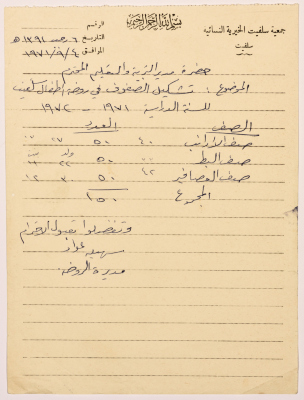 بسم الله الرحمن الرحيم
جمعية سلفيت الخيرية النسائية
سلفيت
الرقيم
التاريخ ١٣٩١ هـ
الموافق ٤ / ٩ / ١٩٧١ م
حضرة مدير التربية والتعليم المحترم
الموضوع : تشكيل الصفوف في روضة اطفال سلفيت
للسنة الدراسية ١٩٧١ - ١٩٧٢
الصف العدد
صف الأرانب ٥٠
صف البط ٥٠
صف العصافير ٥٠
المجموع ١٥٠
وتفضلوا بقبول الاحترام
مديرة الروضة